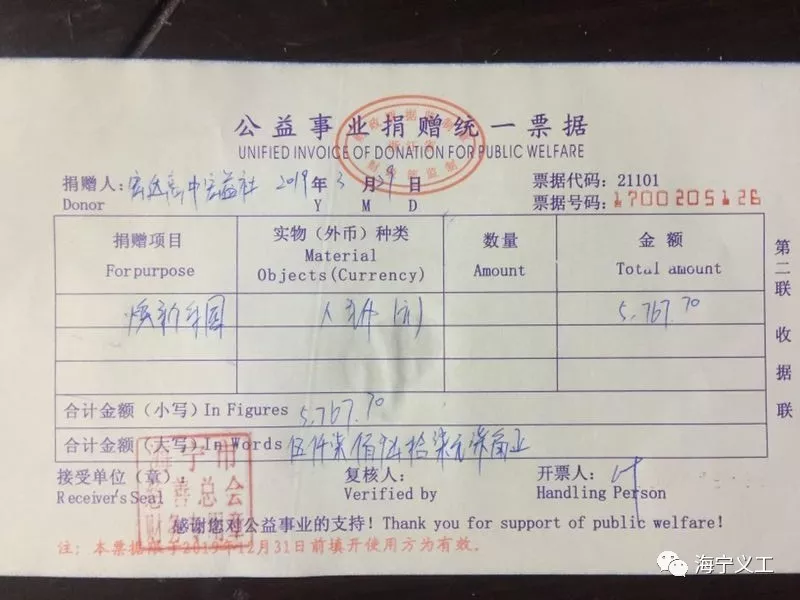 公益事业捐赠统一票据
UNIFIED INVOICE OF DONATION FOR PUBLIC WELFARE
捐赠人: 宏达高中宏益社 2019年3月29日 票据代码: 21101
Donor Y M D 票据号码: 1700205126
捐赠项目 实物（外币）种类 数量 金额
For purpose Material Objects(Currency) Amount Total amount
焕新乐园 人民币（元） 5,767.70
合计金额（小写）In Figures 5,767.70
合计金额（大写）In Words 伍仟柒佰陆拾柒元柒角正
接受单位（章） 复核人: 开票人: 叶
Receiver's Seal Verified by Handling Person
海宁市慈善总会财务专用章
感谢您对公益事业的支持! Thank you for support of public welfare!
注: 本票据限于2019年12月31日前填开使用方为有效。
第二联 收据联
海宁义工